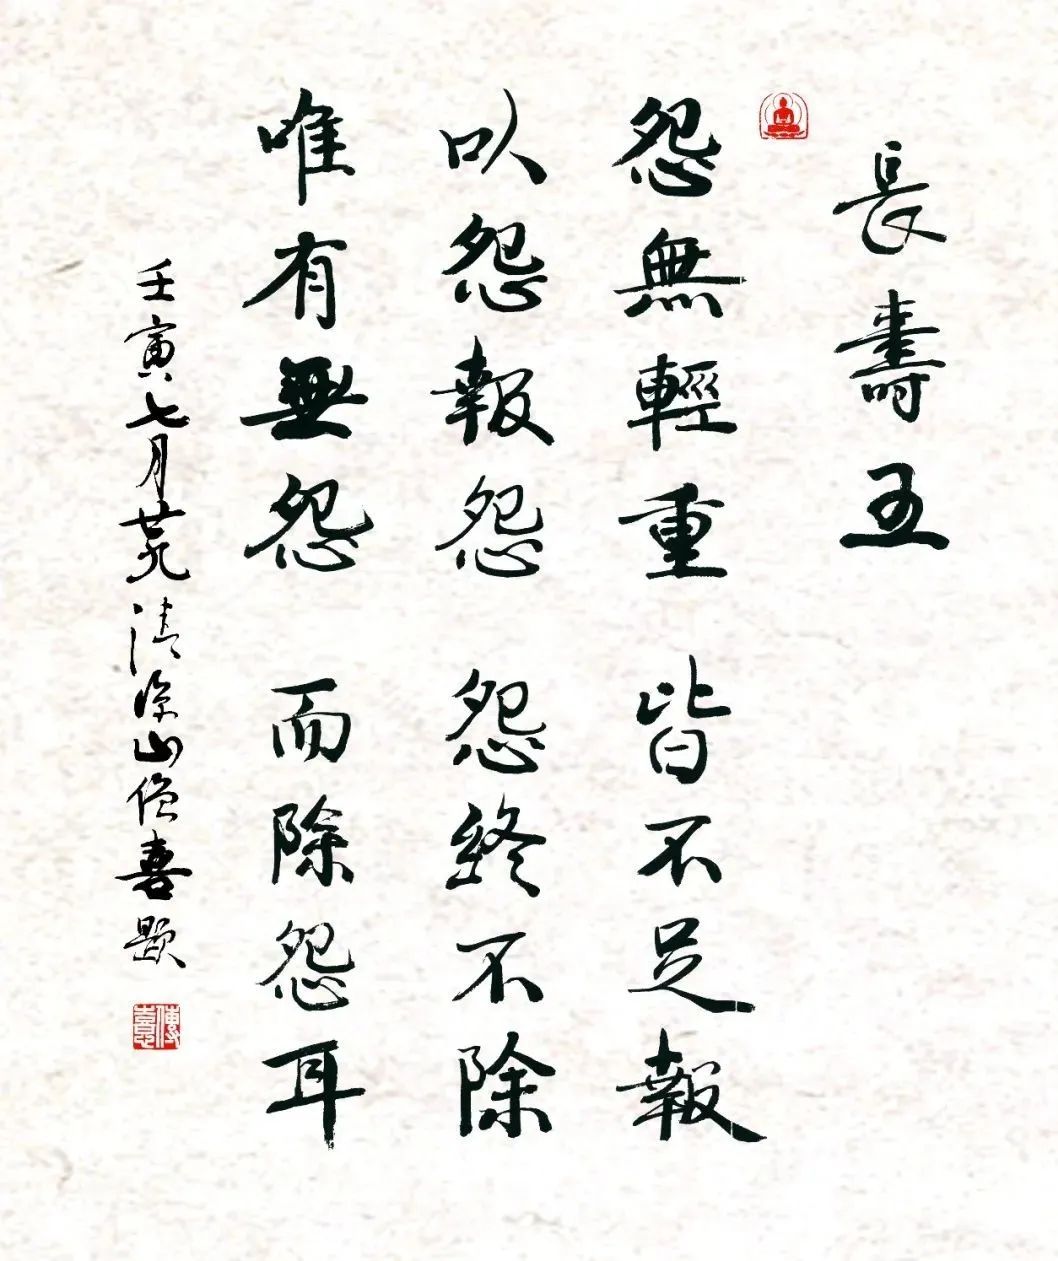 長壽王
怨無輕重 皆不足報
以怨報怨 怨終不除
唯有無怨 而除怨耳
壬寅七月 清涼山僧喜題
傳喜